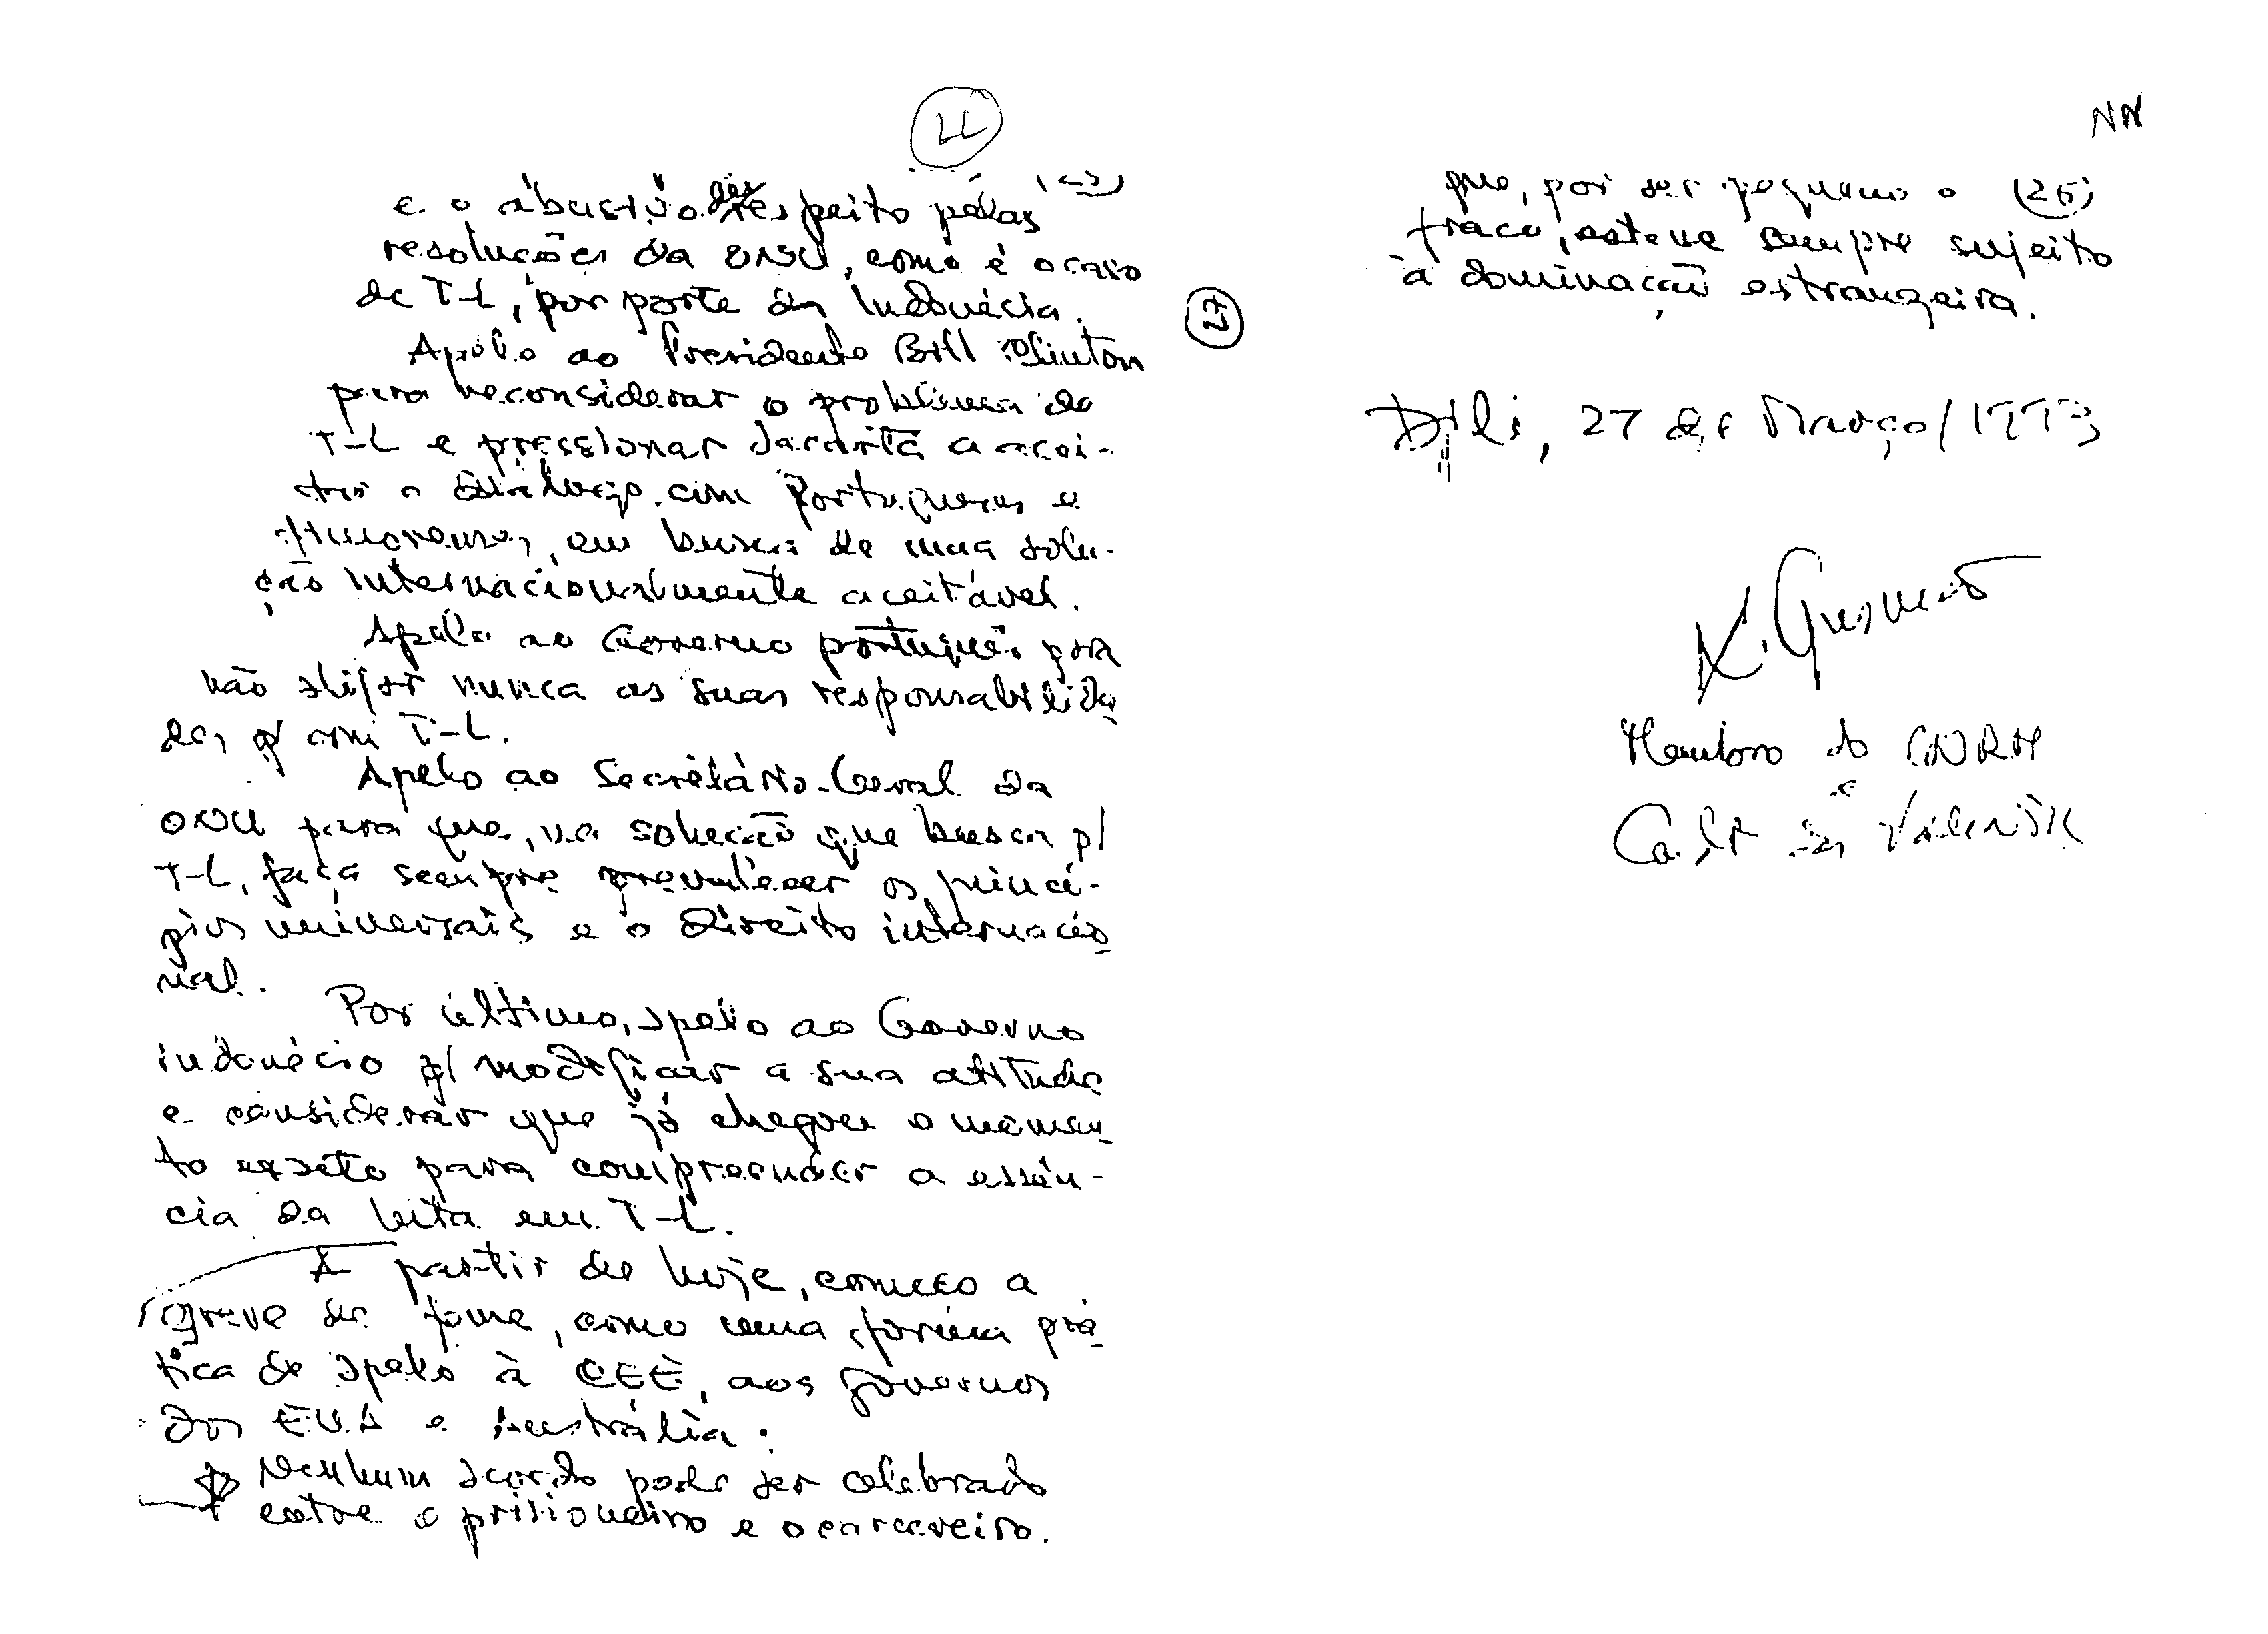 LL
e o abusivo desrespeito pelas
resoluções da ONU, como é o caso
de T-L, por parte da Indonésia.
Apelo ao Presidente Bill Clinton
para reconsiderar o problema de
T-L e pressionar Jacarta a acei-
tar o diálogo com Portugueses e
timorenses, em busca de uma solu-
ção internacionalmente aceitável.
Apelo ao Governo português para
não alijar nunca as suas responsabilida
des p/ com T-L.
Apelo ao Secretário-Geral da
ONU para que, na solução que busca p/
T-L, faça sempre prevalecer os princí-
pios universais e o Direito internacio
nal.
Por último, apelo ao Governo
indonésio p/ modificar a sua atitude
e considerar que já chegou o momen
to exato para compreender a essên-
cia da luta em T-L.
A partir de hoje, começo a
greve de fome, como uma forma prá
tica de apelo à CEE, aos governos
dos EUA e Austrália.
Nenhum acordo pode ser celebrado
entre o prisioneiro e o carcereiro.
NN
que, por ser pequeno e (26)
fraco, esteve sempre sujeito
à dominação estrangeira.
Díli, 27 de Março/1993
X. Gusmão
Membro do CNRM
e
das